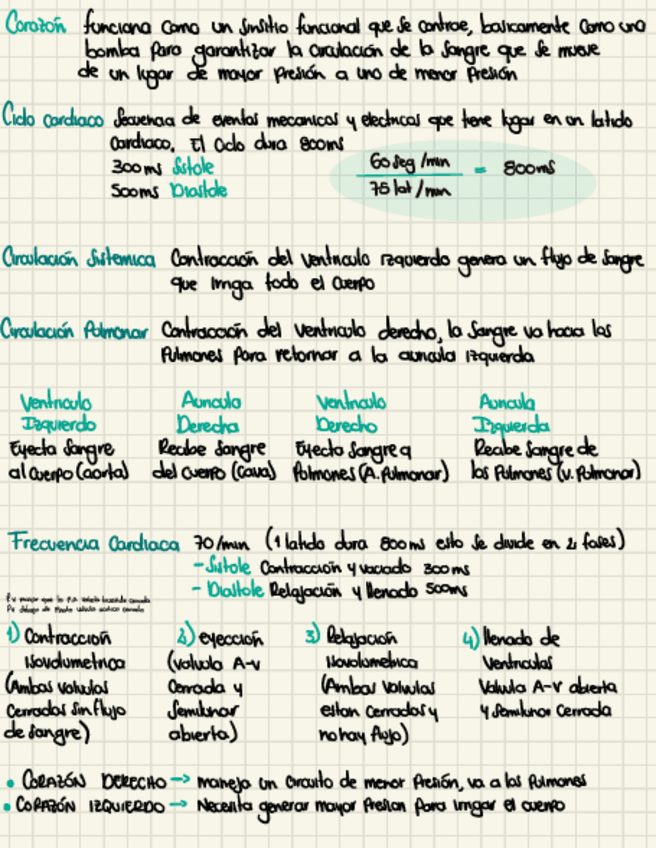 Corazón funciona como un sinsitio funcional que se contrae, basicamente como una
bomba para garantizar la circulación de la sangre que se mueve
de un lugar de mayor presión a uno de menor presión
Ciclo cardiaco Secuencia de eventos mecanicos y electricos que tiene lugar en un latido
cardiaco. El ciclo dura 800ms
300ms Sístole
500ms Diastole
60 seg /min
75 lat /min
= 800ms
Circulación Sistemica Contracción del ventriculo izquierdo genera un flujo de sangre
que irriga todo el cuerpo
Circulación Pulmonar Contracción del ventriculo derecho, la sangre va hacia los
Pulmones para retornar a la auricula izquierda
Ventriculo
Izquierdo
Eyecta sangre
al cuerpo (aorta)
Auricula
Derecha
Recibe sangre
del cuerpo (cava)
Ventriculo
Derecho
Eyecta sangre a
Pulmones (A. pulmonar)
Auricula
Izquierda
Recibe sangre de
los Pulmones (v. Pulmonar)
Frecuencia Cardiaca 70/min (1 latido dura 800ms esto se divide en 2 fases)
- Sístole Contracción y vaciado 300ms
- Diastole Relajación y llenado 500ms
1) Contracción
Isovolumetrica
(Ambas valvulas
Cerradas sin flujo
de sangre)
2) eyección
(valvula A-V
Cerrada y
Semilunar
abierta)
3) Relajación
Isovolumetrica
(Ambas valvulas
estan cerradas y
no hay flujo)
4) llenado de
Ventriculas
Valvula A-V abierta
y Semilunar Cerrada
• CORAZÓN DERECHO → maneja un circuito de menor Presión, va a las Pulmones
• CORAZÓN IZQUIERDO → Necesita generar mayor Presion para irrigar el cuerpo